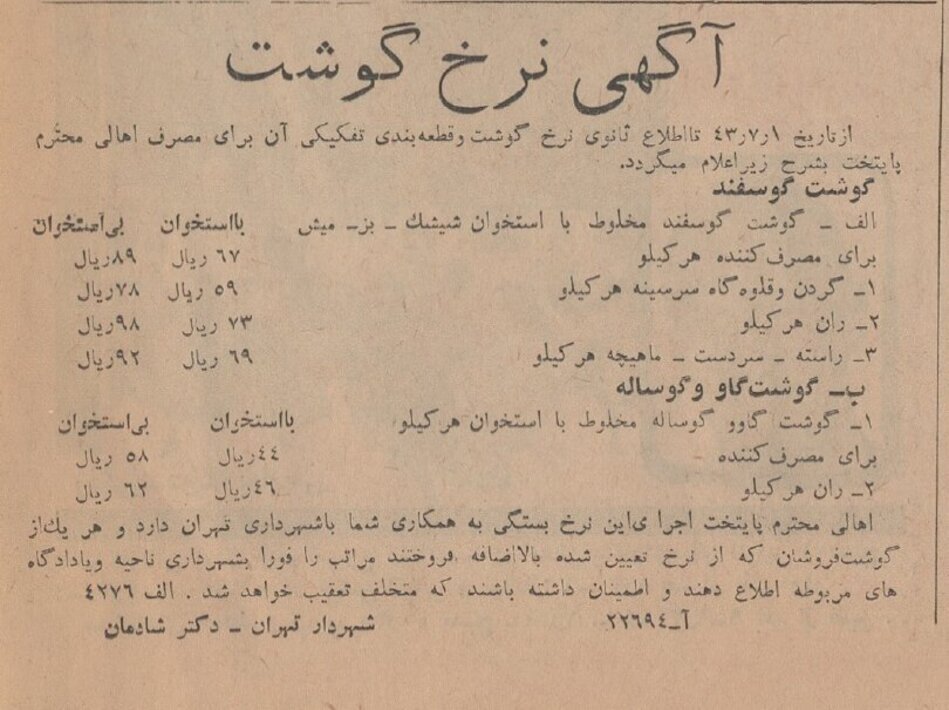 آگهی نرخ گوشت
از تاریخ ۴۳٫۷٫۱ تا اطلاع ثانوی نرخ گوشت و قطعه‌بندی تفکیکی آن برای مصرف اهالی محترم
پایتخت بشرح زیر اعلام میگردد.
گوشت گوسفند
الف ـ گوشت گوسفند مخلوط با استخوان شیشك ـ بز ـ میش بااستخوان بی‌استخوان
برای مصرف‌کننده هرکیلو ۶۷ ریال ۸۹ریال
۱ـ گردن وقلوه‌گاه سرسینه هرکیلو ۵۹ ریال ۷۸ریال
۲ـ ران هرکیلو ۷۳ ریال ۹۸ریال
۳ـ راسته ـ سردست ـ ماهیچه هرکیلو ۶۹ ریال ۹۲ریال
ب ـ گوشت‌گاو وگوساله
۱ـ گوشت گاوو گوساله مخلوط با استخوان هرکیلو بااستخوان بی‌استخوان
برای مصرف‌کننده ۴۴ریال ۵۸ ریال
۲ـ ران هرکیلو ۴۶ریال ۶۲ ریال
اهالی محترم پایتخت اجرا ی‌این نرخ بستگی به همکاری شما باشهرداری تهران دارد و هر یك‌از
گوشت‌فروشان که از نرخ تعیین شده بالااضافه فروختند مراتب را فورا بشهرداری ناحیه ویادادگاه
های مربوطه اطلاع دهند و اطمینان داشته باشند که متخلف تعقیب خواهد شد . الف ۴۲۷۶
آـ۲۲۶۹۴ شهردار تهران ـ دکتر شادمان